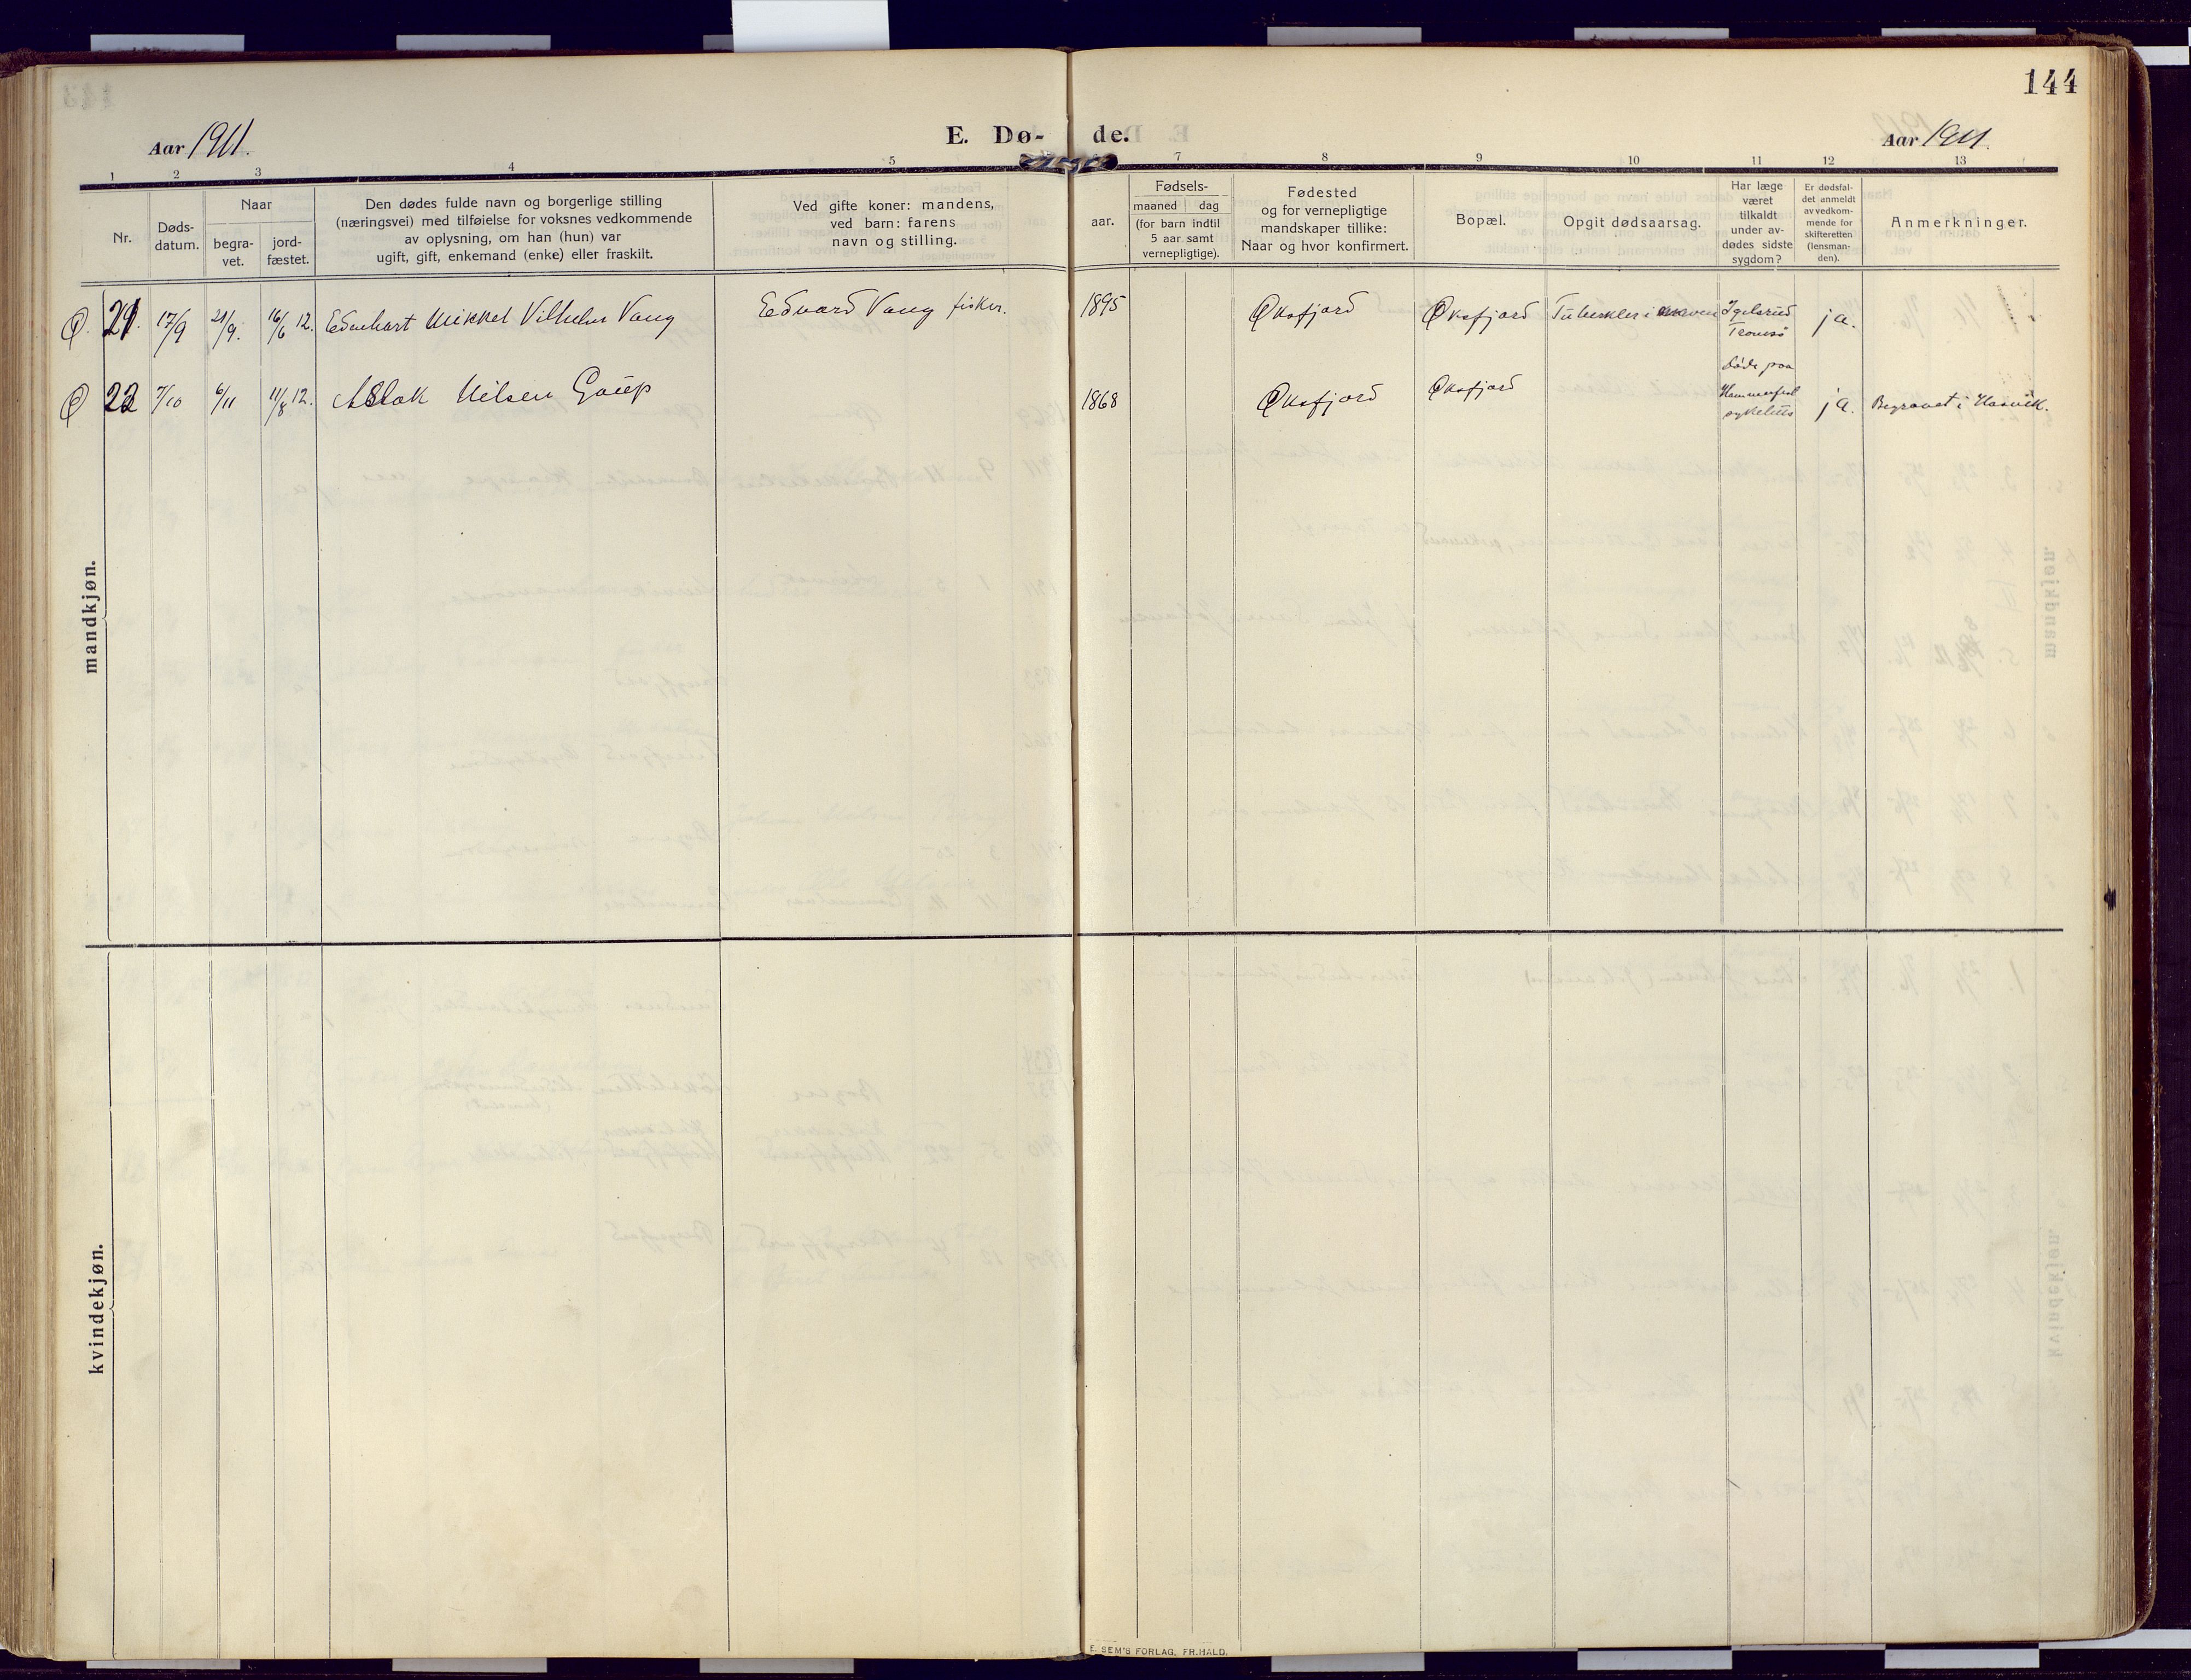 144
Aar 1911.
E. Dø- de.
Aar 1911.
1 2 3 4 5 7 8 9 10 11 12 13
Nr.
Døds-
datum.
Naar
begra-
vet.
jord-
fæstet.
Den dødes fulde navn og borgerlige stilling
(næringsvei) med tilføielse for voksnes vedkommende
av oplysning, om han (hun) var
ugift, gift, enkemand (enke) eller fraskilt.
Ved gifte koner: mandens,
ved barn: farens
navn og stilling.
aar.
Fødsels-
maaned dag
(for barn indtil
5 aar samt
vernepligtige).
Fødested
og for vernepligtige
mandskaper tillike:
Naar og hvor konfirmert.
Bopæl.
Opgit dødsaarsag.
Har læge
været
tilkaldt
under av-
dødes sidste
sygdom?
Er dødsfal-
det anmeldt
av vedkom-
mende for
skifteretten
(lensman-
den).
Anmerkninger.
mandkjøn.
Ø. 21. 17/9 21/9. 16/6 12. Edenhart Mikkel Vilhelm Vang Edvard Vang fisker. 1895 Øksfjord Øksfjord Tuberkler i Igelsrud
Tromsø
ja.
Ø 22 7/10 6/11 11/8 12. Aslak Nilsen Gaup 1868 Øksfjord Øksfjord døde paa
Hammerfest
sykehus
ja. Begravet i Hasvik.
kvindekjøn.
E. SEM'S FORLAG, FR.HALD.